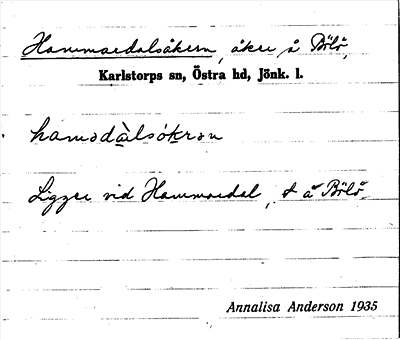 Hammaedalsåkern, åker å Bölö,
Karlstorps sn, Östra hd, Jönk. l.
hamədàlsókrən
Ligger vid Hammaedal, t å Bölö.
Annalisa Anderson 1935